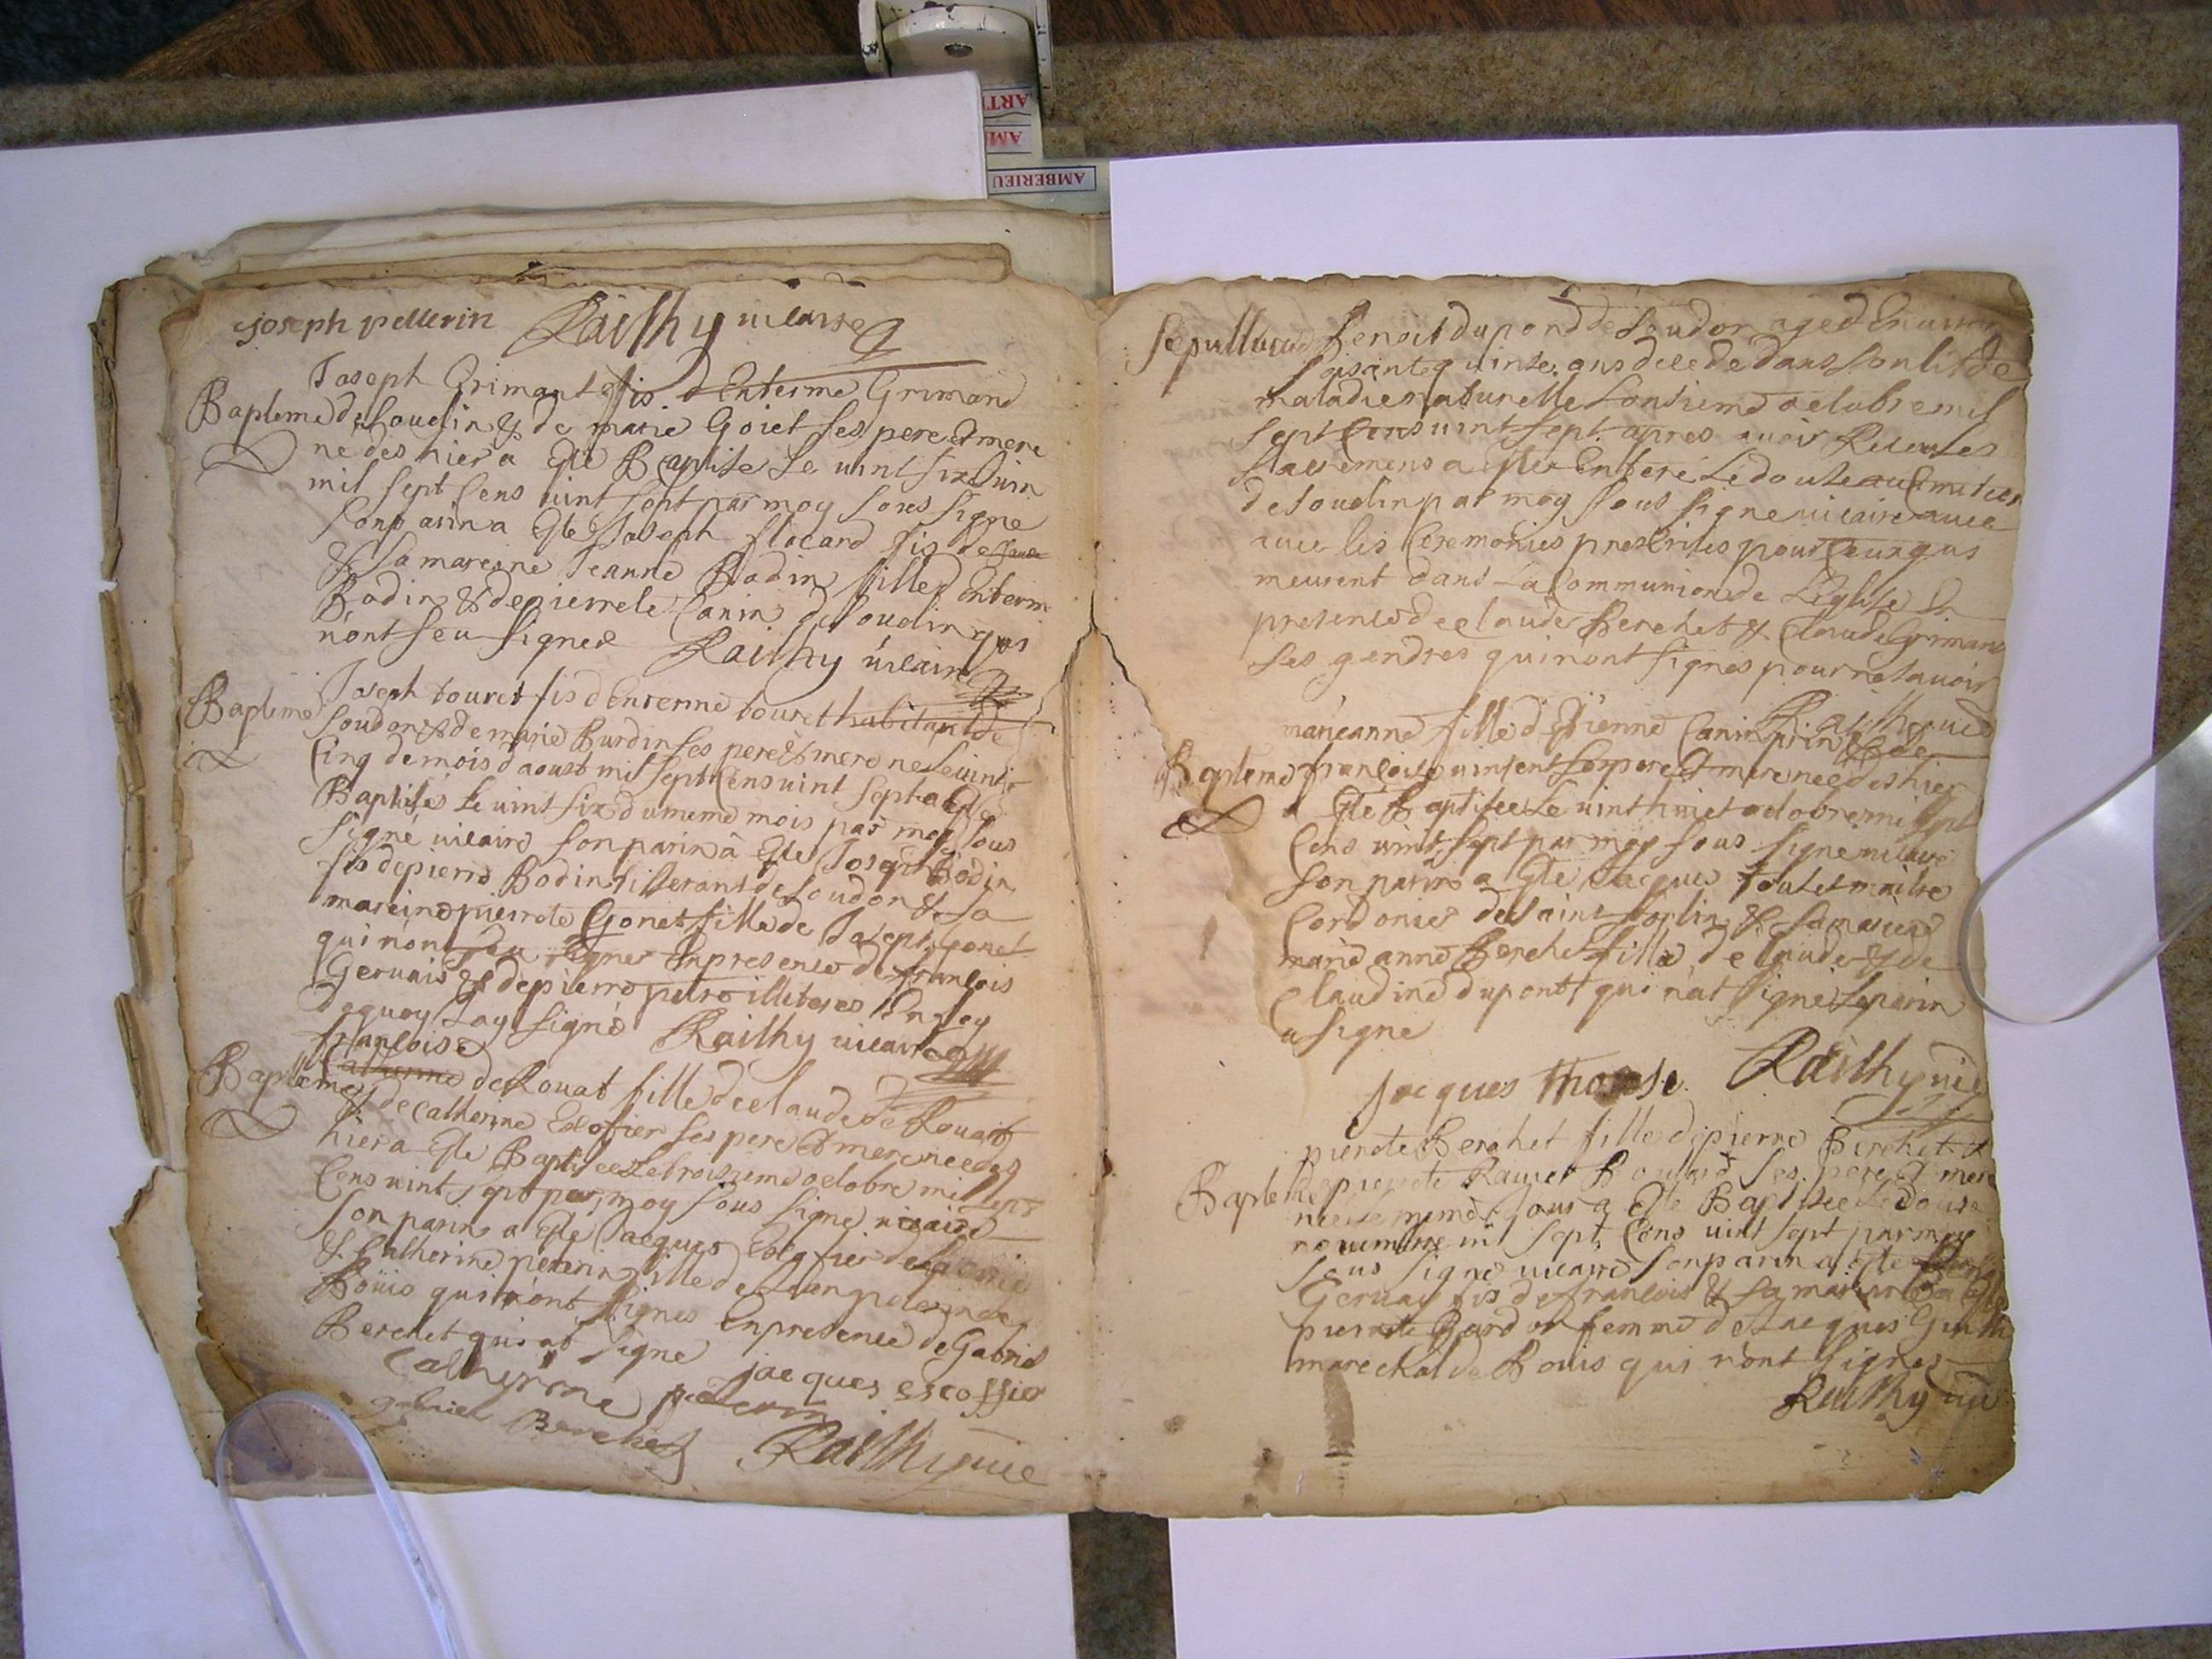 ART
AM
AMBERIEU
joseph pellerin Railhy vicaire
Joseph Grimant fis d'Entieme Grimand
Bapteme de Soudin & de marie Goiet ses pere et mere
né des hier a Esté Baptise Le vint six Juin
mil sept Cens vint sept par moy sous signe
son parin a Esté Joseph flocard fis de
& sa mareine Jeanne Bodin fille d'Entiem
Bodin & de pierrete Canin de Soudin qui
n'ont seu signer Railhy vicaire
Joseph touret fis d'Entienne touret habitant de
Bapteme Soudon & de marie Burdin ses pere et mere ne le vint
Cinq de mois d'aoust mil sept Cens vint sept a Esté
Baptisés le vint six du meme mois par moy sous
signé vicaire son parin à Esté Joseph Bodin
fis de pierre Bodin tisserant de Soudon & sa
mareine pierrete Gonet fille de Joseph Gonet
qui n'ont seu signer En presence de francois
Gervais & de pierre petro illiteres En foy
de quoy J'ay signé Railhy vicaire
francoise
Bapteme de Rouat fille de claude de Rouat
& de Catherine Escofier ses pere et mere nee des
hier a Esté Baptisee Le troisieme octobre mil sept
Cens vint sept par moy sous signe vicaire
son parin a Esté Jacques Escofier de
& Catherine pelerin fille de Jean pelerin de
Boüis qui n'ont signes En presence de Gabriel
Berchet qui at signe
jacques escoffier
Catherine pelerin
gabriel Berchet Railhy vic
Sepulture Benoit dupond de Soudon aged Environ
soisante quinse ans decede dans son lit de
maladie naturelle L'onsieme octobre mil
sept Cens vint sept apres avoir Receu les
sacremens a Esté Enteré Le douse au Cimetier
de Soudin par moy sous signe vicaire avec
avec les Ceremonies prescrites pour Ceux qui
meurent dans La Communion de L'eglise En
presence de claude Berchet & Claude Grimand
ses gendres qui n'ont signes pour ne savoir
Railhy vic
marieanne fille d'Etienne Canin prin & de
Bapteme francoise vinsent ses pere et mere nee des hier
a Esté Baptisee Le vint huiet octobre mil sept
Cens vint sept par moy sous signe vicaire
son parin a Esté Jacques toulet maitre
Cordonier de saint Sorlin & sa mareine
marie anne Berchet fille de claude & de
Claudine dupont qui n'at signe Le parin
a signe
jacques Railhy vic
pierete Berchet fille de pierre Berchet &
Bapteme de pierrete Ravier Boulard ses pere et mere
nee le meme jour a Esté Baptisee Le douse
novembre mil sept Cens vint sept par moy
sous signe vicaire son parin a Esté
Gervay fis de francois & sa mareine a Esté
pierrete femme de Jacques
marechal de Bouis qui n'ont signes
Railhy vic